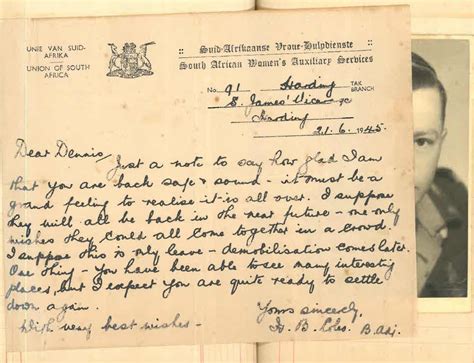 UNIE VAN SUID-
AFRIKA
UNION OF SOUTH
AFRICA
Suid-Afrikaanse Vroue-Hulpdienste
South African Women's Auxiliary Services
No. 91 Harding TAK
BRANCH
S. James' Vicarage
Harding
21. 6. 1945.
Dear Dennis,
Just a note to say how glad I am
that you are back safe & sound - it must be a
grand feeling to realise it is all over. I suppose
they will all be back in the near future - one only
wishes they could all come together in a crowd.
I suppose this is only leave - demobilisation comes later.
One thing - you have been able to see many interesting
places but I expect you are quite ready to settle
down again.
With very best wishes -
Yours sincerely,